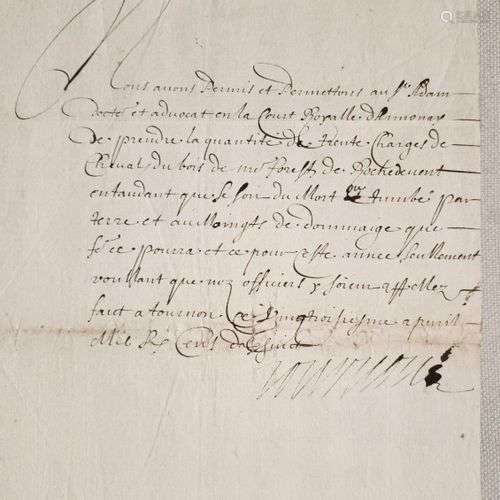 Nous avons Permis et Permettons au Sr Adam
Docte et advocat en la Court Royalle d'Annonay
De prendre la quantité de trente Charges de
Cheval du bois de ma forest de Rochedevent
entandant que se soit du Mort ou tumbé par
terre et au Moingts de dommaige que
fe ce pourra et ce pour ceste année seullement
voullant que noz officiers y soient appellez
faict a tournon ce vingtroisiesme apvril
Mil Six Cens